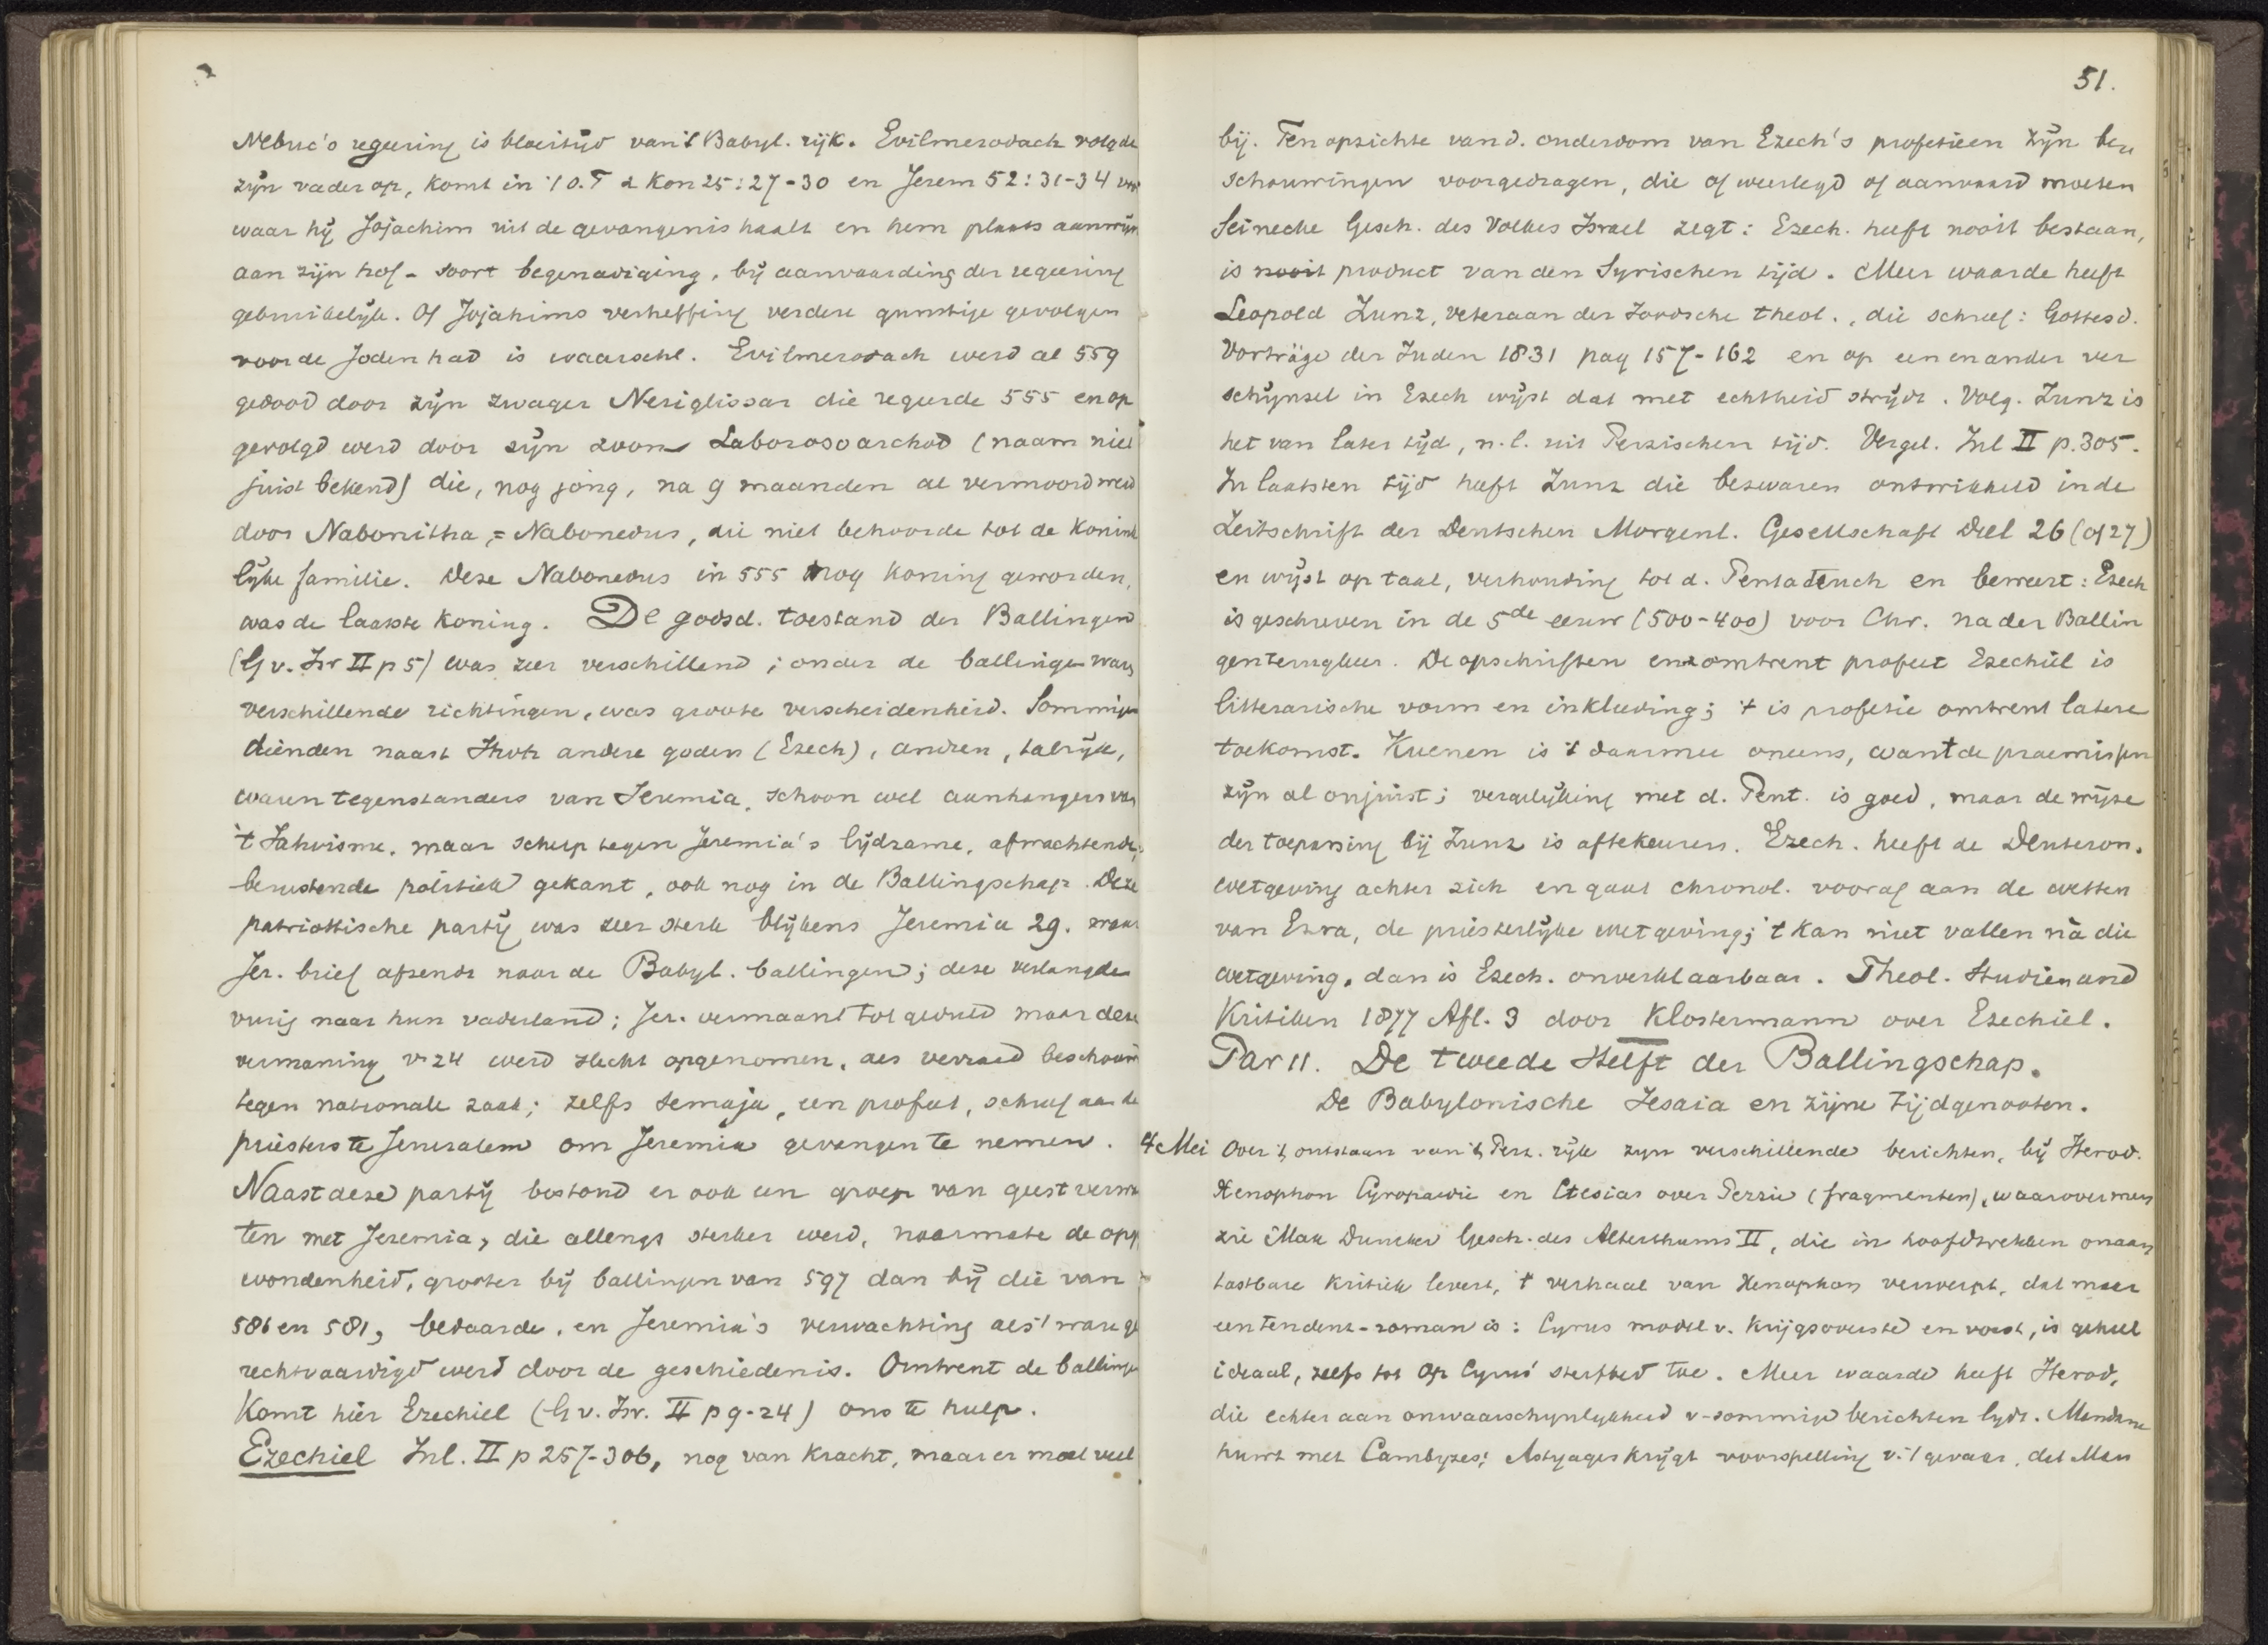 Nebuc's regeering is bloeitijd van 't Babyl. rijk. Evilmerodach volgde
zijn vader op, komt in 't O.T 2 Kon 25:27-30 en Jerem 52:31-34 voor
waar hij Jojachim uit de gevangenis haalt en hem plaats aanwijst
aan zijn hof - soort begenadiging, bij aanvaarding der regeering
gebruikelijk. Of Jojakims verheffing verdere gunstige gevolgen
voor de Joden had is waarschl. Evilmerodach werd al 559
gedood door zijn zwager Neriglissar die regeerde 555 en op
gevolgd werd door zijn zoon Laborosoarchod (naam niet
juist bekend) die, nog jong, na 9 maanden al vermoord werd
door Nabonitha, = Nabonedus, die niet behoorde tot de konink
lijke familie. Deze Nabonedus in 555 nog koning geworden,
was de laatste koning. De godsd. toestand der Ballingen
(G v. Isr II p 5) was zeer verschillend; onder de ballingen waren
verschillende richtingen, was groote verscheidenheid. Sommigen
dienden naast Jhvh andere goden (Ezech), andren, talrijk,
waren tegenstanders van Jeremia, schoon wel aanhangers van
't Jahvisme, maar scherp tegen Jeremia's lijdzame, afwachtende,
berustende politiek gekant, ook nog in de Ballingschap. Deze
patriottische partij was zeer sterk blijkens Jeremia 29. waar
Jer. brief afzendt naar de Babyl. ballingen; deze verlangden
vurig naar hun vaderland; Jer. vermaant tot geduld maar deze
vermaning v 24 werd slecht opgenomen, als verraad beschouwd
tegen nationale zaak; zelfs Semaja, een profeet, schreef aan de
priesters te Jeruzalem om Jeremia gevangen te nemen.
Naast deze partij bestond er ook een groep van geestverwan
ten met Jeremia, die allengs sterker werd, naarmate de opge
wondenheid, grooter bij ballingen van 597 dan bij die van
586 en 581, bedaarde, en Jeremia's verwachting als 't ware ge
rechtvaardigd werd door de geschiedenis. Omtrent de ballingen
komt hier Ezechiel (G v. Isr. II p 9-24) ons te hulp.
Ezechiel Inl. II p 257-306, nog van kracht, maar er moet veel
51.
bij. Ten opzichte van d. ouderdom van Ezech's profetieen zijn be
schouwingen voorgedragen, die of weerlegd of aanvaard moeten
Seinecke Gesch. des Volkes Israel zegt: Ezech. heeft nooit bestaan,
is nooit product van den Syrischen tijd. Meer waarde heeft
Leopold Zunz, veteraan der Joodsche theol., die schreef: Gottesd.
Vorträge der Juden 1831 pag 157-162 en op een en ander ver
schijnsel in Ezech wijst dat met echtheid strijdt. Volg. Zunz is
het van later tijd, n.l. uit Perzischen tijd. Vergel. Inl II p. 305.
In laatsten tijd heeft Zunz die bezwaren ontwikkeld in de
Zeitschrift der Deutschen Morgenl. Gesellschaft Deel 26 (of 27)
en wijst op taal, verhouding tot d. Pentateuch en beweert: Ezech
is geschreven in de 5de eeuw (500-400) voor Chr. na der Ballin
gen terugkeer. De opschriften enz omtrent profeet Ezechiël is
litterarische vorm en inkleeding; 't is profetie omtrent latere
toekomst. Kuenen is 't daarmee oneens, want de praemissen
zijn al onjuist; vergelijking met d. Pent. is goed, maar de wijze
der toepassing bij Zunz is aftekeuren. Ezech. heeft de Deuteron.
wetgeving achter zich en gaat chronol. vooraf aan de wetten
van Ezra, de priesterlijke wetgeving; 't kan niet vallen nà die
wetgeving, dan is Ezech. onverklaarbaar. Theol. Studien und
Kritiken 1877 Afl. 3 door Klostermann over Ezechiel.
Par 11. De tweede Helft der Ballingschap.
De Babylonische Jesaia en zijne tijdgenooten.
4 Mei Over 't ontstaan van 't Perz. rijk zyn verschillende berichten, bij Herod.
Xenophon Cyropaedie en Ctesias over Perzie (fragmenten), waarover men
zie Max Duncker Gesch. des Alterthums II, die in hoofdtrekken onaan
tastbare kritiek levert, 't verhaal van Xenophon verwerpt, dat meer
een tendenz-roman is: Cyrus model v. krijgsoverste en vorst, is geheel
ideaal, zelfs tot op Cyrus' sterfbed toe. Meer waarde heeft Herod,
die echter aan onwaarschynlykheid v. sommige berichten lydt. Mandane
huwt met Cambyzes; Astyages krijgt voorspelling v. 't gevaar, dat Man